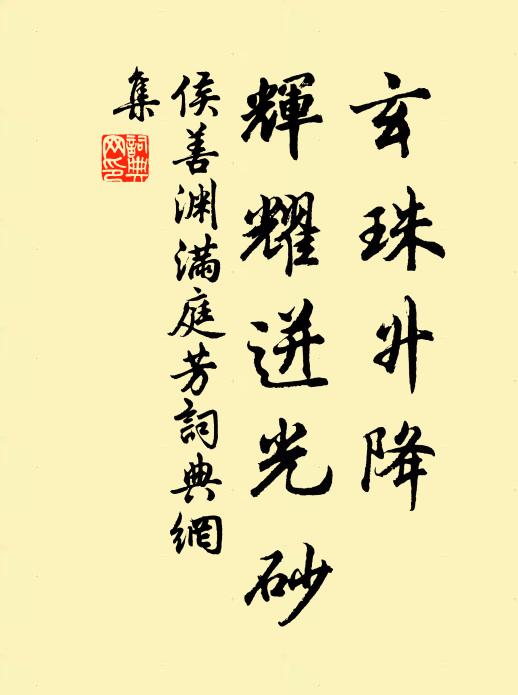 玄珠升降
輝耀迸光砂
侯善渊满庭芳詞典網
集
詞典
网印